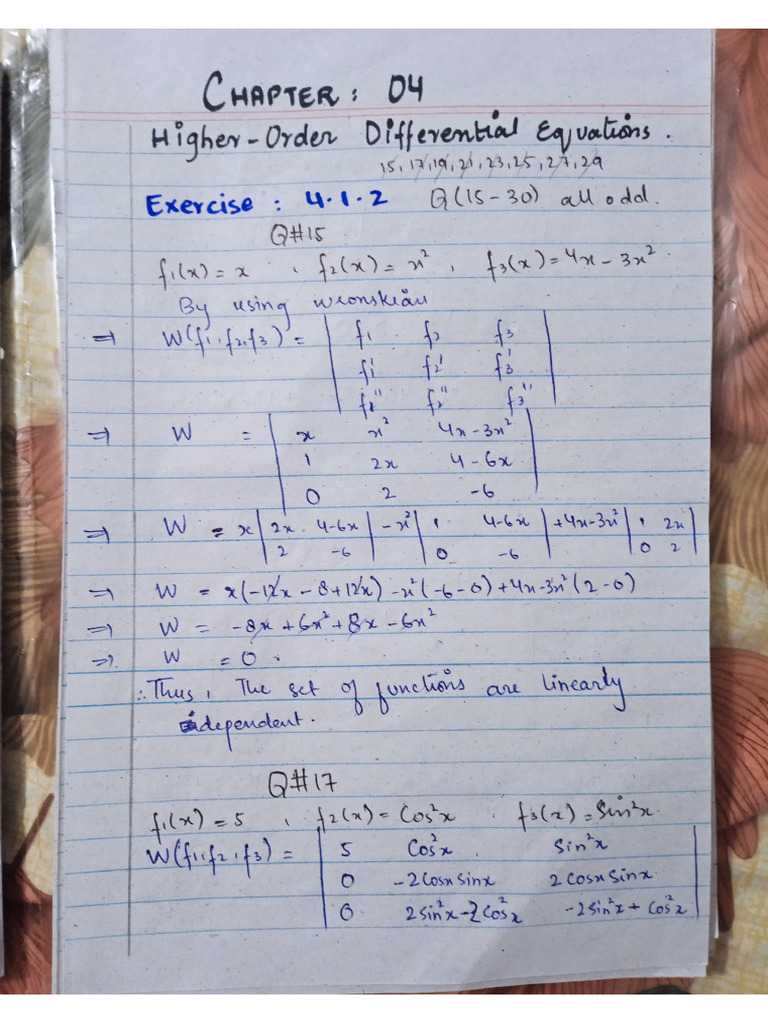 CHAPTER : 04
Higher-Order Differential Equations.
15, 17, 19, 21, 23, 25, 27, 29
Exercise : 4.1.2 Q(15-30) all odd.
Q#15
f₁(x) = x , f₂(x) = x² , f₃(x) = 4x - 3x².
By using wronskian
⇒ W(f₁, f₂, f₃) = | f₁ f₂ f₃ |
| f₁' f₂' f₃' |
| f₁'' f₂'' f₃'' |
⇒ W = | x x² 4x-3x² |
| 1 2x 4-6x |
| 0 2 -6 |
⇒ W = x | 2x 4-6x | - x² | 1 4-6x | + 4x-3x² | 1 2x |
| 2 -6 | | 0 -6 | | 0 2 |
⇒ W = x(-12x - 8 + 12x) - x²(-6-0) + 4x-3x²(2-0)
⇒ W = -8x + 6x² + 8x - 6x²
⇒ W = 0.
∴ Thus, The set of functions are linearly
dependent.
Q#17
f₁(x) = 5 , f₂(x) = Cos²x , f₃(x) = Sin²x.
W(f₁, f₂, f₃) = | 5 Cos²x Sin²x |
| 0 -2Cosx Sinx 2Cosx Sinx |
| 0 2Sin²x-2Cos²x -2Sin²x + Cos²x |